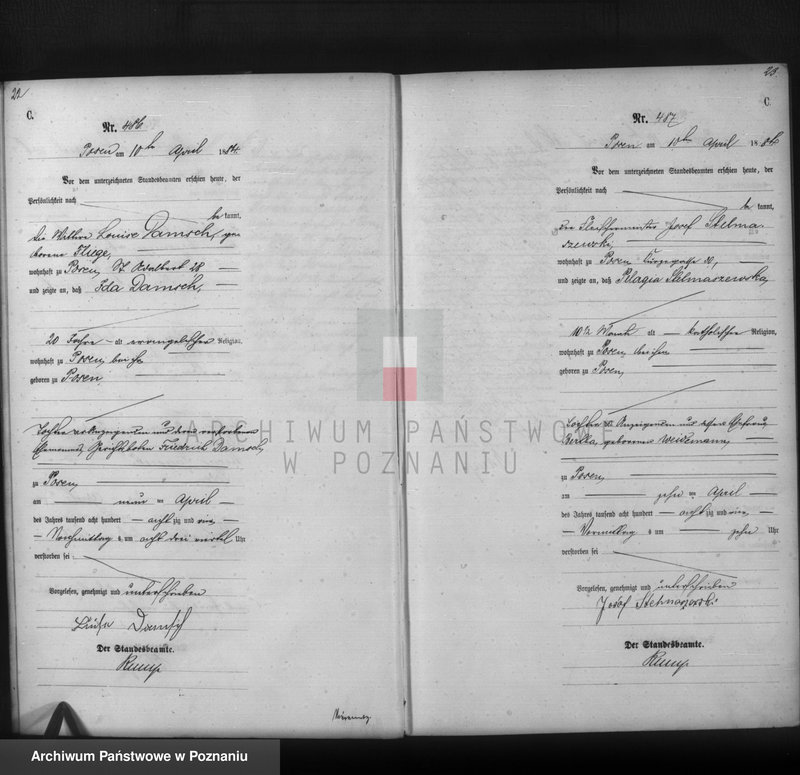 22
C.
Nr. 486
Posen am 10ten April 1884
Vor dem unterzeichneten Standesbeamten erschien heute, der
Persönlichkeit nach
be kannt,
die Wittwe Louise Damsch, ge=
borene Fliege,
wohnhaft zu Posen, St. Adalbert 28
und zeigte an, daß Ida Damsch,
20 Jahre alt evangelischer Religion,
wohnhaft zu Posen bei ihr
geboren zu Posen
Tochter der Anzeigenden und deren verstorbenen
Ehemannes, Gerichtsboten Friedrich Damsch,
zu Posen,
am neun ten April
des Jahres tausend acht hundert acht zig und vier
Nachmittag s um acht drei viertel Uhr
verstorben sei
Vorgelesen, genehmigt und unterschrieben
Luise Damsch
Der Standesbeamte.
23.
C.
Nr. 487
Posen am 10ten April 1884
Vor dem unterzeichneten Standesbeamten erschien heute, der
Persönlichkeit nach
be kannt,
der Fleischermeister Josef Stelma=
szewski,
wohnhaft zu Posen 20,
und zeigte an, daß Pelagia Stelmaszewska,
10½ Monat alt katholischer Religion,
wohnhaft zu Posen bei ihm
geboren zu Posen,
Tochter des Anzeigenden und dessen Ehefrau
geborenen Weidemann,
zu Posen,
am zehn ten April
des Jahres tausend acht hundert acht zig und vier
Vormittag s um zehn Uhr
verstorben sei
Vorgelesen, genehmigt und unterschrieben
Josef Stelmaszewski
Der Standesbeamte.
ARCHIWUM PAŃSTWOWE
W POZNANIU
Archiwum Państwowe w Poznaniu